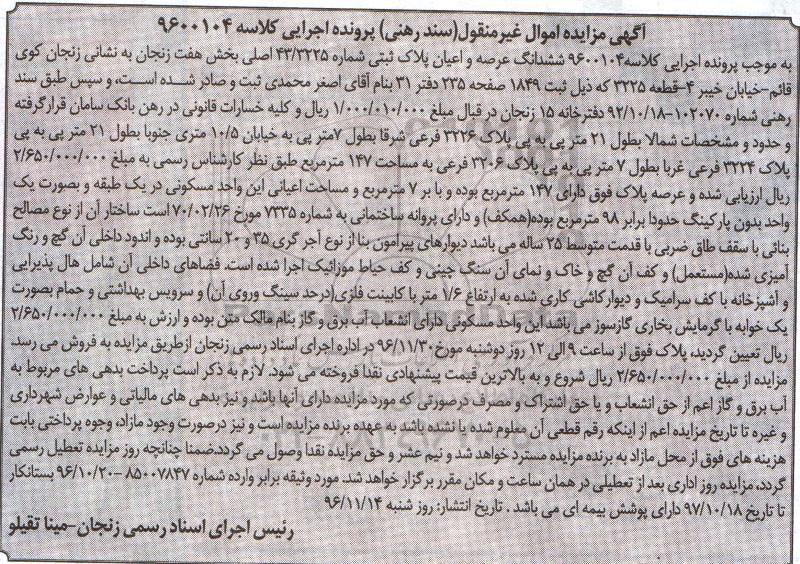 آگهی مزایده اموال غیرمنقول(سند رهنی) پرونده اجرایی کلاسه ۹۶۰۰۱۰۴
به موجب پرونده اجرایی کلاسه۹۶۰۰۱۰۴ ششدانگ عرصه و اعیان پلاک ثبتی شماره ۴۳/۳۲۲۵ اصلی بخش هفت زنجان به نشانی زنجان کوی
قائم-خیابان خیبر ۴-قطعه ۳۲۲۵ که ذیل ثبت ۱۸۴۹ صفحه ۲۳۵ دفتر ۳۱ بنام آقای اصغر محمدی ثبت و صادر شده است، و سپس طبق سند
رهنی شماره ۱۰۲۰۷۰-۹۲/۱۰/۱۸ دفترخانه ۱۵ زنجان در قبال مبلغ ۱/۰۰۰/۰۱۰/۰۰۰ ریال و کلیه خسارات قانونی در رهن بانک سامان قرارگرفته
و حدود و مشخصات شمالا بطول ۲۱ متر پی به پی پلاک ۳۲۲۶ فرعی شرقا بطول ۷متر پی به خیابان ۱۰/۵ متری جنوبا بطول ۲۱ متر پی به پی
پلاک ۳۲۲۴ فرعی غربا بطول ۷ متر پی به پی پلاک ۳۲۰۶ فرعی به مساحت ۱۴۷ مترمربع طبق نظر کارشناس رسمی به مبلغ ۲/۶۵۰/۰۰۰/۰۰۰
ریال ارزیابی شده و عرصه پلاک فوق دارای ۱۴۷ مترمربع بوده و با بر ۷ مترمربع و مساحت اعیانی این واحد مسکونی در یک طبقه و بصورت یک
واحد بدون پارکینگ حدودا برابر ۹۸ مترمربع بوده(همکف) و دارای پروانه ساختمانی به شماره ۷۳۳۵ مورخ ۷۰/۰۲/۲۶ است ساختار آن از نوع مصالح
بنائی با سقف طاق ضربی با قدمت متوسط ۲۵ ساله می باشد دیوارهای پیرامون بنا از نوع آجر گری ۳۵ و ۲۰ سانتی بوده و اندود داخلی آن گچ و رنگ
آمیزی شده(مستعمل) و کف آن گچ و خاک و نمای آن سنگ چینی و کف حیاط موزائیک اجرا شده است. فضاهای داخلی آن شامل هال پذیرایی
و آشپزخانه با کف سرامیک و دیوارکاشی کاری شده به ارتفاع ۱/۶ متر با کابینت فلزی(درحد سینگ وروی آن) و سرویس بهداشتی و حمام بصورت
یک خوابه با گرمایش بخاری گازسوز می باشد این واحد مسکونی دارای انشعاب آب برق و گاز بنام مالک متن بوده و ارزش به مبلغ ۲/۶۵۰/۰۰۰/۰۰۰
ریال تعیین گردید، پلاک فوق از ساعت ۹ الی ۱۲ روز دوشنبه مورخ ۹۶/۱۱/۳۰ در اداره اجرای اسناد رسمی زنجان ازطریق مزایده به فروش می رسد.
مزایده از مبلغ ۲/۶۵۰/۰۰۰/۰۰۰ ریال شروع و به بالاترین قیمت پیشنهادی نقدا فروخته می شود. لازم به ذکر است پرداخت بدهی های مربوط به
آب برق و گاز اعم از حق انشعاب و یا حق اشتراک و مصرف درصورتی که مورد مزایده دارای آنها باشد و نیز بدهی های مالیاتی و عوارض شهرداری
و غیره تا تاریخ مزایده اعم از اینکه رقم قطعی آن معلوم شده یا نشده باشد به عهده برنده مزایده است و نیز درصورت وجود مازاد، وجوه پرداختی بابت
هزینه های فوق از محل مازاد به برنده مزایده مسترد خواهد شد و نیم عشر و حق مزایده نقدا وصول می گردد.ضمنا چنانچه روز مزایده تعطیل رسمی
گردد، مزایده روز اداری بعد از تعطیلی در همان ساعت و مکان مقرر برگزار خواهد شد. مورد وثیقه برابر وارده شماره ۸۵۰۰۷۸۴۷-۹۶/۱۰/۲۰ بستانکار
تا تاریخ ۹۷/۱۰/۱۸ دارای پوشش بیمه ای می باشد . تاریخ انتشار: روز شنبه ۹۶/۱۱/۱۴
رئیس اجرای اسناد رسمی زنجان-مینا تقیلو